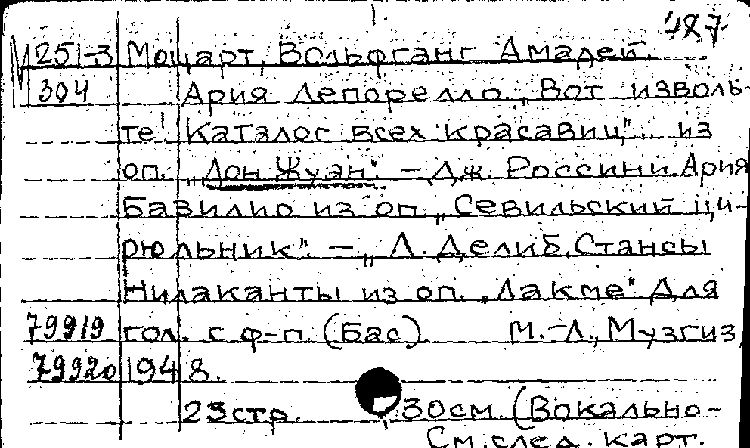 487
М251-3 Моцарт, Вольфганг Амадей.
304 Ария Лепорелло „Вот изволь-
те! Каталог всех красавиц". из
оп. „Дон Жуан" – Дж. Россини. Ария
Базилио из оп „Севильский ци-
рюльник". – „ Л. Делиб. Стансы
Нилаканты из оп. „Лакме" Для
79919 гол. с ф-п. (Бас). М.-Л., Музгиз,
79920 1948.
23стр. 30см. (Вокально-
См. след. карт.